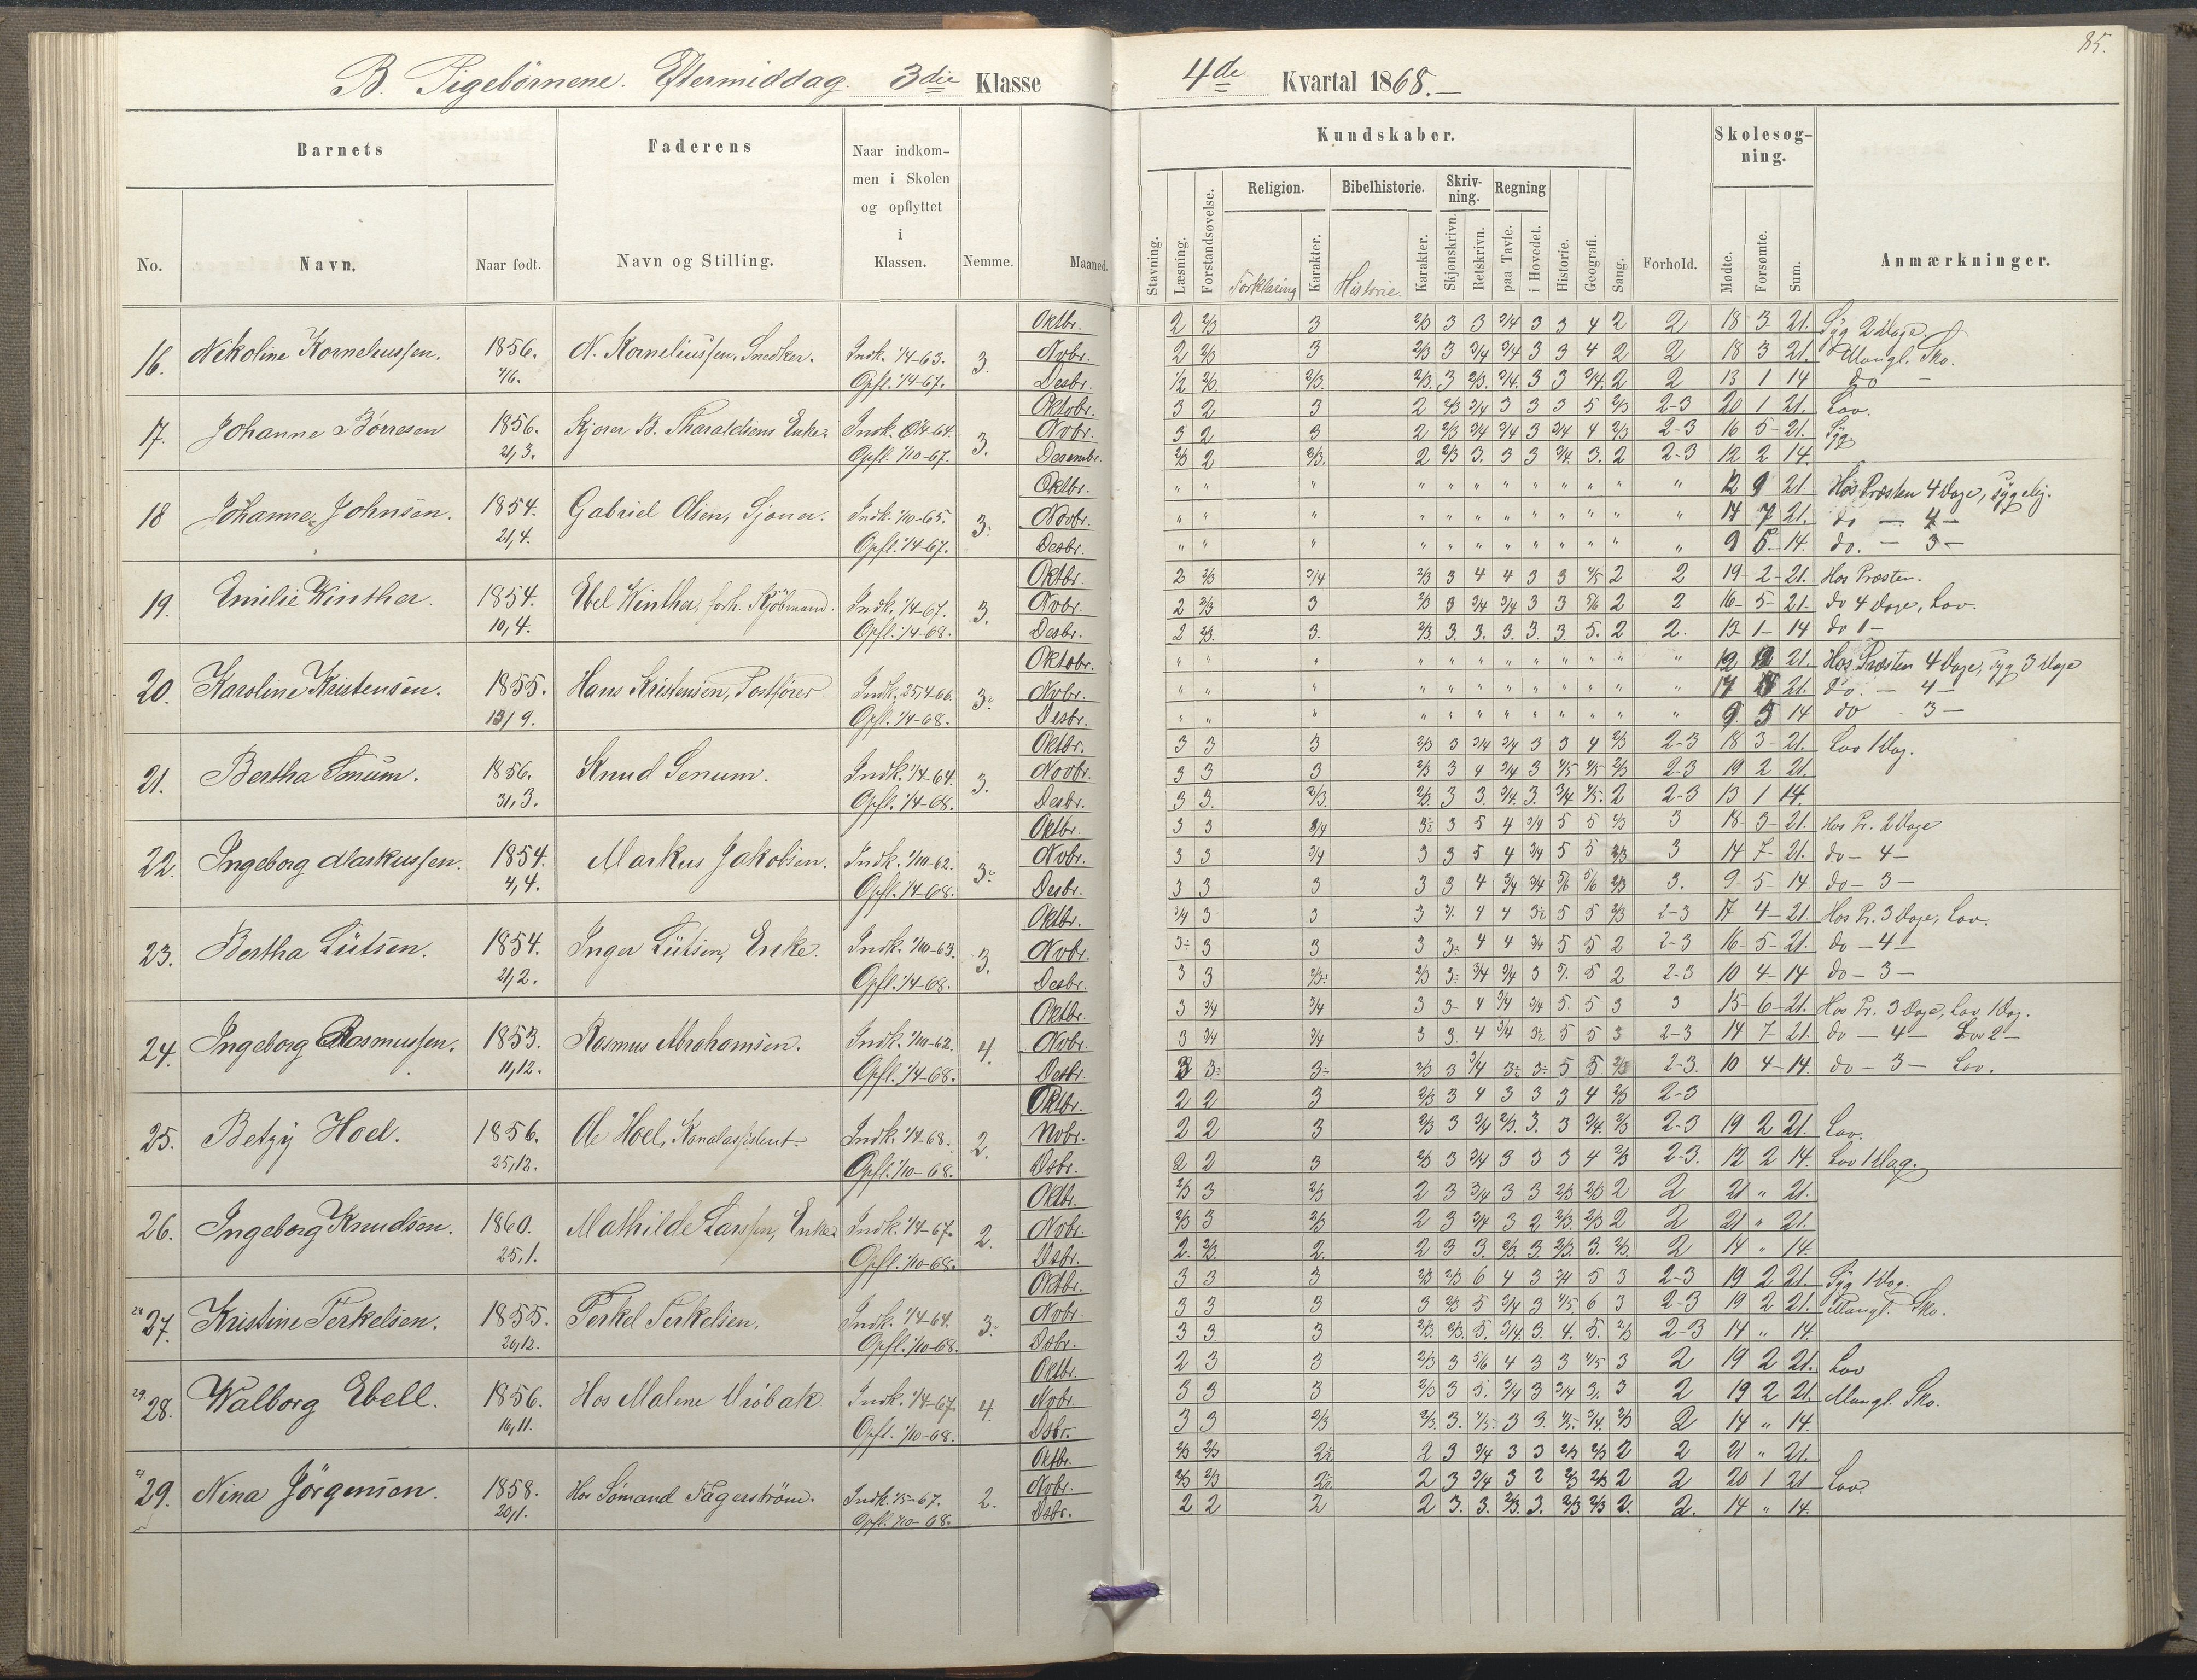 85.
B. Pigebörnene. Eftermiddag. 3die Klasse 4de Kvartal 1868.
Barnets Faderens Naar indkommen i Skolen og opflyttet i Klassen. Nemme. Maaned.
No. Navn. Naar født. Navn og Stilling.
Kundskaber. Forhold. Skolesøgning. Anmærkninger.
Stavning. Læsning. Forstandsøvelse. Religion. Bibelhistorie. Skrivning. Regning Historie. Geografi. Sang.
Forklaring Karakter. Historie. Karakter. Skjønskrivn. Retskrivn. paa Tavle. i Hovedet. Mødte. Forsømte. Sum.
16. Nikoline Korneliussen. 1856. 4/6. N. Korneliussen, Snedker. Indk. 1/4-63. Opfl. 1/4-67. 3.
Oktbr. 2 2/3 3 2/3 3 3 3/4 3 3 4 2 2 18 3 21. Syg 2 Dage.
Novbr. 2 2/3 3 2/3 3 3/4 3/4 3 3 4 2 2 18 3 21 Mangl. Sko.
Desbr. 2 13 1 14 do
17. Johanne Börresen 1856. 21,3. Indk. Opfl. 1/10-67. 3.
Oktobr. 3 2 3 2 2/3 3/4 3 3 3 5 2/3 2-3 20 1 21. Lov.
Novbr. 3 2 3 2 2/3 3/4 3/4 3 3/4 4 2/3 2-3 16 5 21. Syg
Desembr. 2/3 2 2/3. 2 2/3 3. 3 3 3/4. 3. 2 2-3 12 2 14.
18 Johanne Johnsen. 1854. 21,4. Gabriel Olsen, Sjöner. Indk. 1/10-65. Opfl. 1/4-67. 3.
Oktbr. " " " " " " " " " " " " 12 9 21 Hos Præsten 4 Dage, sygelig.
Novbr. " " " " " " " " " " " " 14 7 21. do — 4 —
Desbr. " " " " " " " " " " " " 9 5 14. do. — 3 —
19. Emilie Winther. 1854. 10,4. Ebel Winther, forh. Kjöbmand. Indk. 1/4-67. Opfl. 1/4-68. 3.
Oktbr. 2 2/3 3/4 2/3 3 4 4 3 3 4/5 2 2 19 2 21. Hos Præsten.
Novbr. 2 2/3 3 2/3 3 3/4 3/4 3 3 5/6 2 2 16 5 21. do 4 Dage, Lov.
Desbr. 2 2/3. 3. 2/3. 3. 3. 3. 3. 3. 5. 2 2. 13 1 14 do 1 —
20. Karoline Kristensen. 1855. 13/9. Hans Kristensen, Postförer. Indk. 25,4-66. Opfl. 1/4-68. 3.
Oktobr. " " " " " " " " " " " " 21. Hos Præsten 4 Dage, syg 3 Dage
Novbr. " " " " " " " " " " " " 21. do. — 4 —
Desbr. " " " " " " " " " " " " 9. 5 14 do — 3 —
21. Bertha Senum. 1856. 31,3. Knud Senum. Indk. 1/4-64. Opfl. 1/4-68. 3.
Oktbr. 3 3 3 2/3 3 3/4 3/4 3 3 4 2/3 2-3 18 3 21. Lov 1 Dag.
Novbr. 3 3 3 2/3 3 4 3/4 3 4/5 4/5 2/3 2-3 19 2 21
Desbr. 3 3. 2/3. 2/3. 3 3. 3/4. 3. 3/4 4/5. 2 2-3 13 1 14.
22. Ingeborg Markussen. 1854. 4,4. Markus Jakobsen. Indk. 1/10-62. Opfl. 1/4-68. 3.
Oktbr. 3 3 3/4 3 5 4 3/4 5 5 2/3 3 18 3 21. Hos Pr. 2 Dage
Novbr. 3 3 3/4 3 3 5 4 3/4 5 5 2/3 3 14 7 21. do — 4 —
Desbr. 3 3 3 3 3 4 3/4 3/4 5/6 5/6 2/3 3. 9 5 14 do — 3 —
23. Bertha Lütsen. 1854. 21,2. Inger Lütsen, Enke. Indk. 1/10-63. Opfl. 1/4-68. 3.
Oktbr. 3/4 3 3 3 4 4 5 5 2/3 2-3 17 4 21. Hos Pr. 3 Dage, Lov.
Novbr. 3 3 3 3 4 4 3/4 5 5 2 2-3 16 5 21. do — 4 —
Desbr. 3 3 2/3 3/4 3/4 3 5 2 2-3 10 4 14 do — 3 —
24. Ingeborg Rasmussen. 1853. 11,12. Rasmus Abrahamsen. Indk. 1/10-62. Opfl. 1/4-68. 4.
Oktbr. 3 3/4 3/4 3 3 4 3/4 3/4 5. 5 3 3 15 6 21. Hos Pr. 3 Dage, Lov 1 Dag.
Novbr. 3 3/4 3/4 3 3 4 3/4 5 5 3 2-3 14 7 21. do — 4 — Lov 2 —
Desbr. 3 2/3 3 3/4 5 5 2/3 2-3. 10 4 14. do — 3 — Lov.
25. Betzy Hoel. 1856. 25,12. Hoel, Kanalassistent. Indk. 1/4-68. Opfl. 1/10-68. 2.
Oktbr. 2 2 3 2/3 3 4 3 3 3 4 2/3 2-3
Novbr. 2 2 3 2/3 3 3/4 2/3. 3. 3 3/4. 2/3 2-3 19 2 21. Lov.
Dsbr. 2 2 3 2/3 3 3/4 3 3 3 4 2/3 2-3. 12 2 14. Lov 1 Dag.
26. Ingeborg Knudsen. 1860. 25,1. Mathilde Larssen, Enke. Indk. 1/4-67. Opfl. 1/10-68. 2.
Oktbr. 2/3 3 2/3 2 3 3/4 3 3 2/3 2/3 2 2 21 " 21.
Novbr. 2/3 3 2/3 2 3 3/4 3 2 2/3. 2/3 2 2 21 " 21.
Dsbr. 2. 2/3. 2. 2 3 3. 2/3. 3. 2/3. 3. 2/3. 2 14 " 14.
27. Kristine Terkelsen. 1855. 20,12. Terkel Terkelsen. Indk. 1/4-64. Opfl. 1/10-68. 3.
Oktbr. 3 3 3 2/3 2/3 6 4 3 3/4 5 3 2-3 19 2 21. Syg 1 Dag.
Novbr. 3 3 3 3 2/3 5 3/4 3 4/5. 6 3 2-3 19 2 21. Mangl. Sko.
Dsbr. 3 3. 3 2/3. 2/3. 5. 3/4. 3. 4. 5. 2/3 2-3 14 " 14.
29. 28. Walborg Ebell. 1856. 16,11. Hos Malene Dröbak. Indk. 1/4-67. Opfl. 1/10-68. 4.
Oktbr. 2 3 3 2/3 3 5/6 4 3 3 4/5 3 2 19 2 21. Lov
Novbr. 3 3 3 2/3 3 5. 3/4 3 3/4 3. 3 2 19 2 21. Mangl. Sko.
Dsbr. 3 3 2/3 2/3. 3. 4/5. 3 3. 4/5. 3/4. 2/3 2 14 " 14.
29. Nina Jörgensen. 1858. 20,1. Hos Sömand Fagerström. Indk. 1/5-67. Opfl. 1/10-68. 2.
Oktbr. 2/3 2/3 2 3 3/4 3 3 2/3 2/3 2 2 21 " 21.
Novbr. 2/3 2/3 2 3 3/4 3 2 2/3 2/3 2 2 20 1 21 Lov.
Dsbr. 2 2 2 2 3. 3. 2/3. 3. 2/3 2/3 2. 2. 14 " 14.